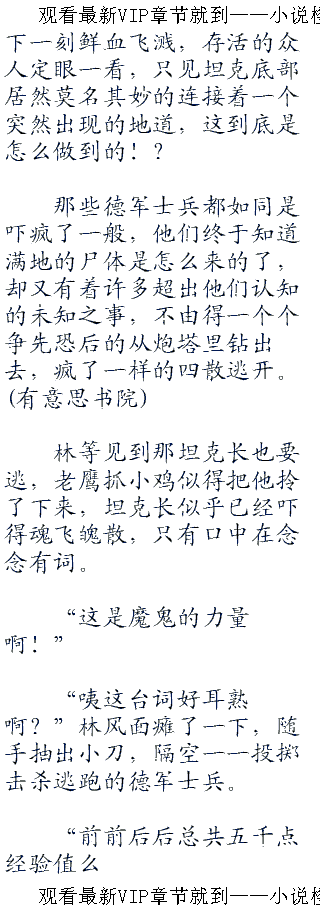 观看最新VIP章节就到——小说检
下一刻鲜血飞溅，存活的众
人定眼一看，只见坦克底部
居然莫名其妙的连接着一个
突然出现的地道，这到底是
怎么做到的！？
那些德军士兵都如同是
吓疯了一般，他们终于知道
满地的尸体是怎么来的了，
却又有着许多超出他们认知
的未知之事，不由得一个个
争先恐后的从炮塔里钻出
去，疯了一样的四散逃开。
(有意思书院)
林等见到那坦克长也要
逃，老鹰抓小鸡似得把他拎
了下来，坦克长似乎已经吓
得魂飞魄散，只有口中在念
念有词。
“这是魔鬼的力量
啊！”
“咦这台词好耳熟
啊？”林风面瘫了一下，随
手抽出小刀，隔空一一投掷
击杀逃跑的德军士兵。
“前前后后总共五千点
经验值么
观看最新VIP章节就到——小说检